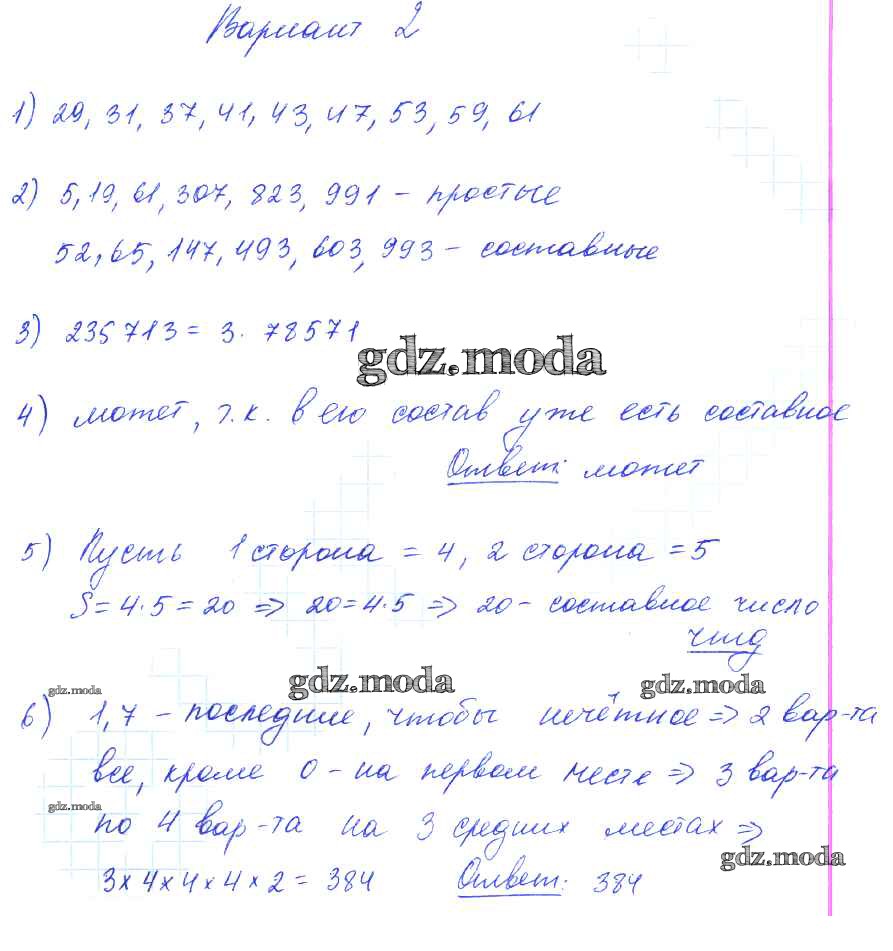 Вариант 2
1) 29, 31, 37, 41, 43, 47, 53, 59, 61
2) 5, 19, 61, 307, 823, 991 – простые
52, 65, 147, 493, 603, 993 – составные
3) 235713 = 3 · 78571
gdz.moda
4) может, т.к. в его состав уже есть составное
Ответ: может
5) Пусть 1 сторона = 4, 2 сторона = 5
S = 4·5 = 20 => 20 = 4·5 => 20 – составное число
чтд
gdz.moda gdz.moda gdz.moda
6) 1, 7 – последние, чтобы нечётное => 2 вар-та
все, кроме 0 – на первом месте => 3 вар-та
gdz.moda
по 4 вар-та на 3 средних местах =>
gdz.moda
3 × 4 × 4 × 4 × 2 = 384 Ответ: 384